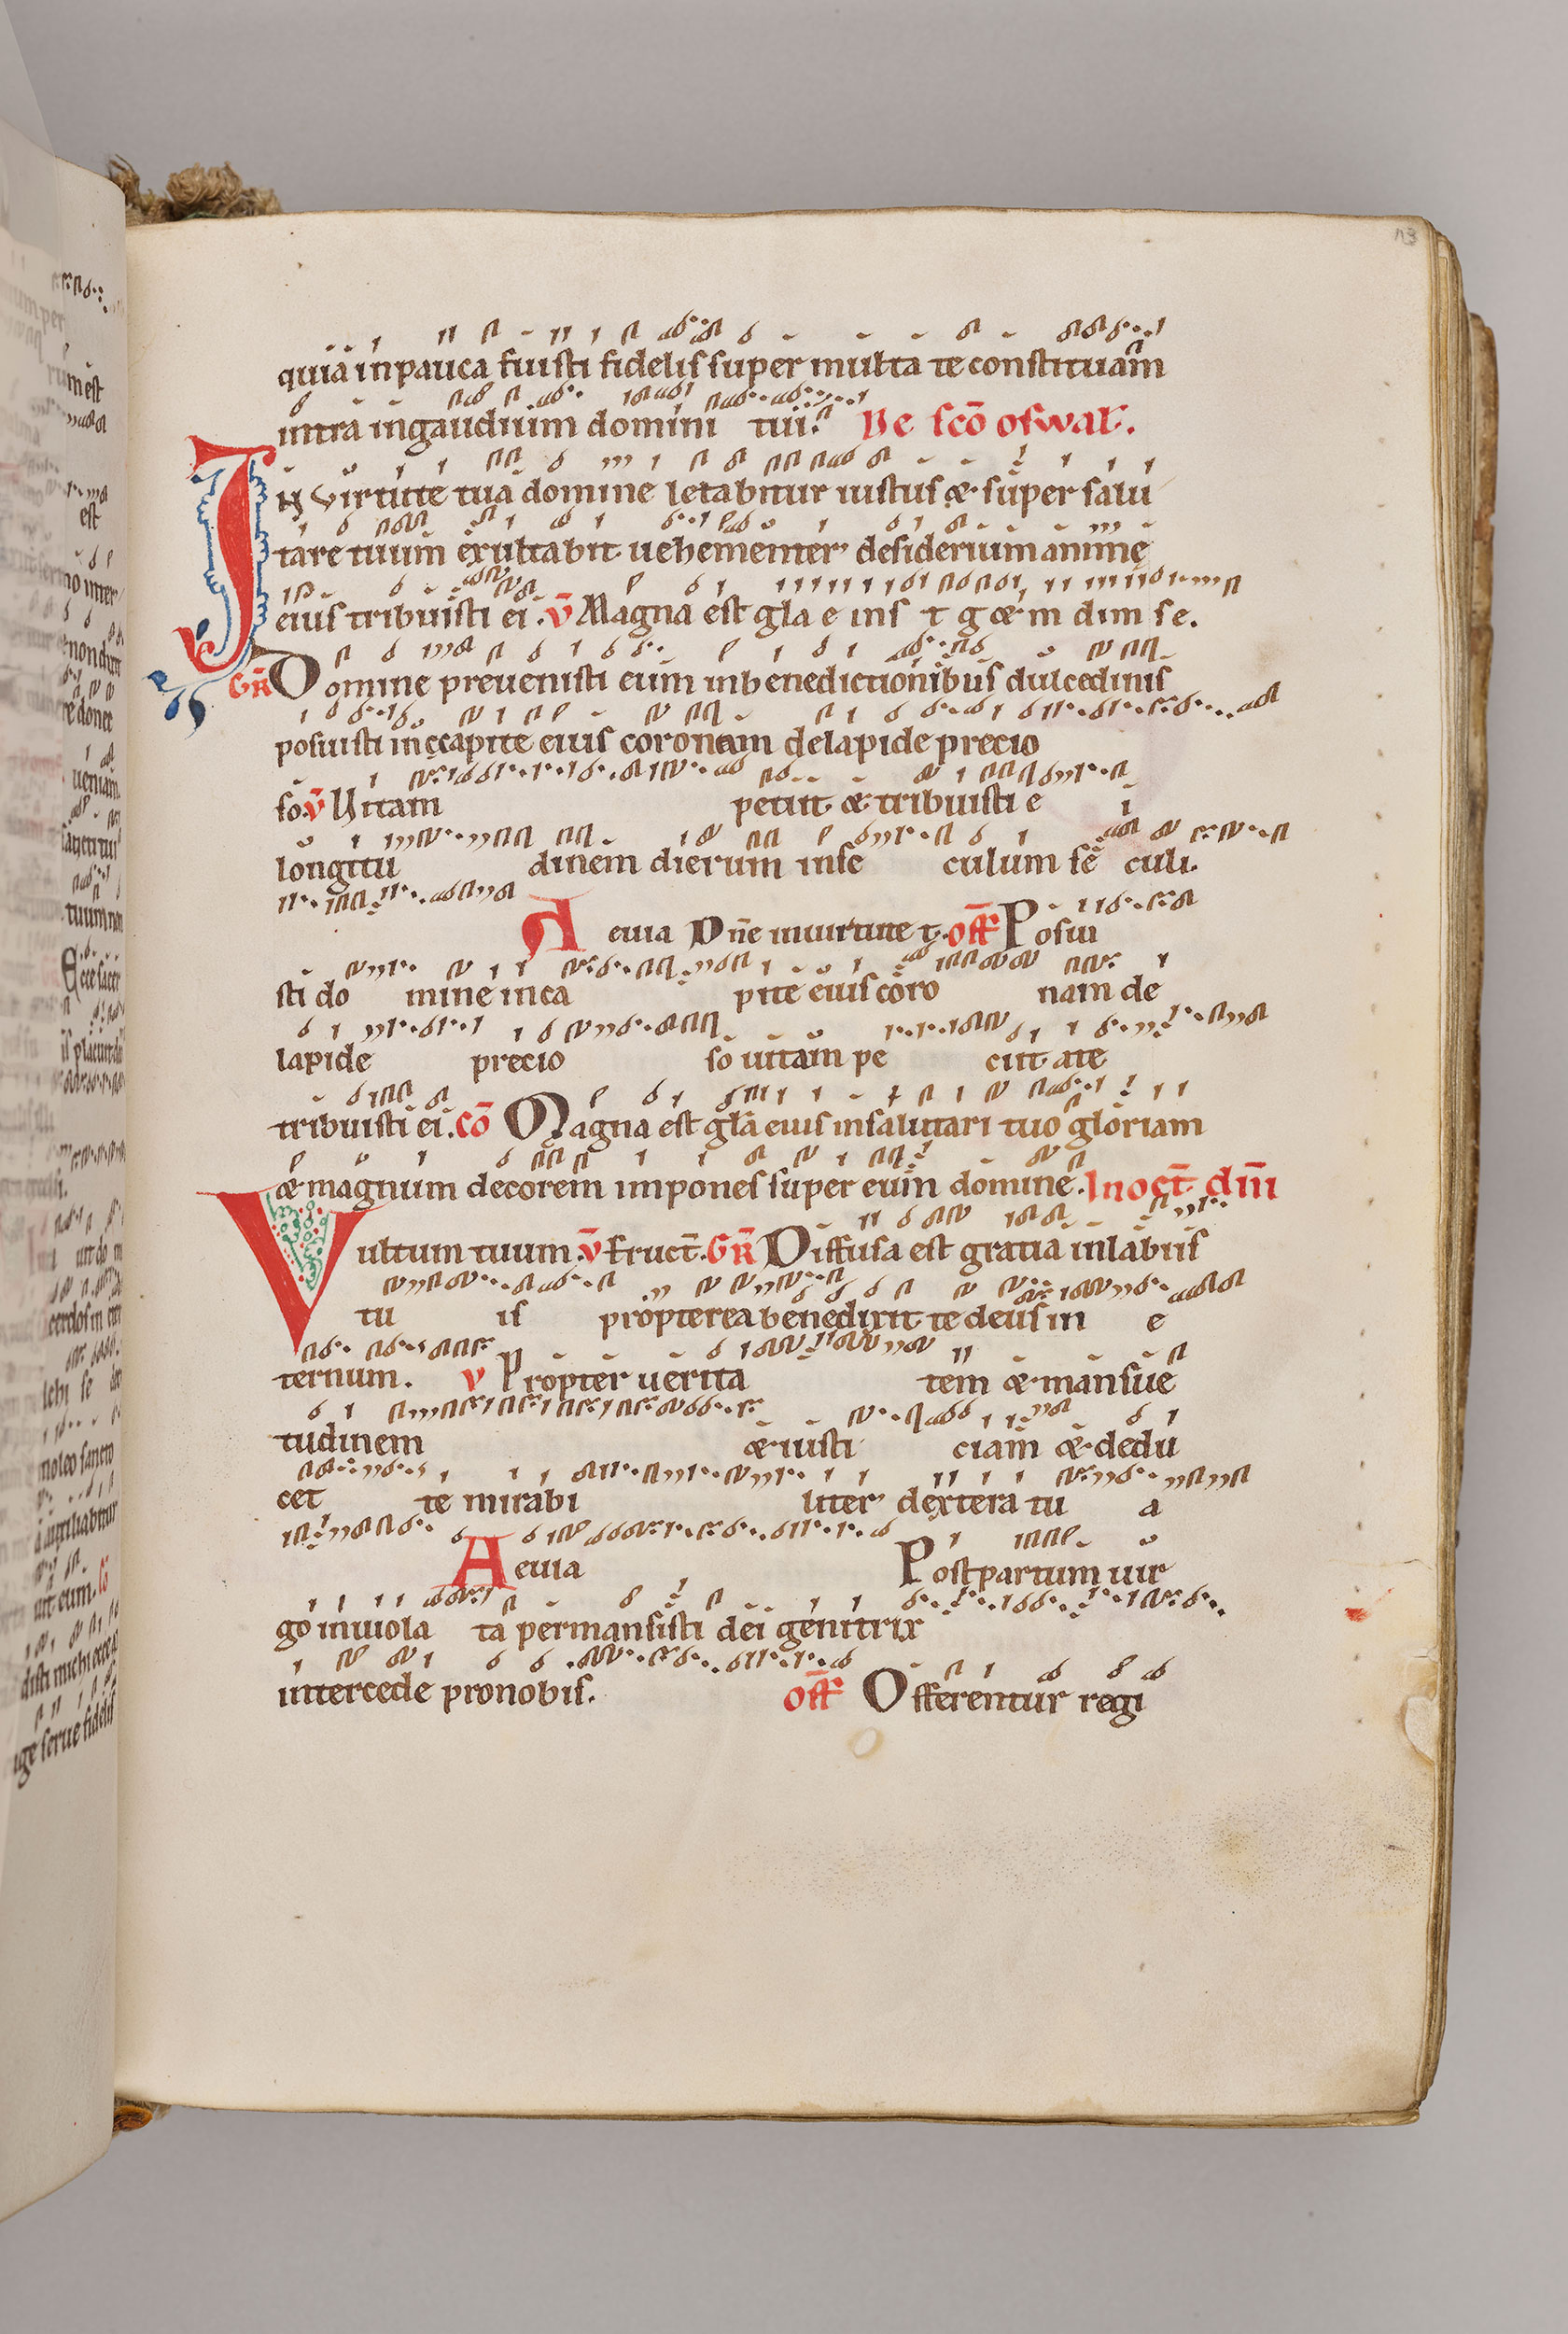 113
quia inpauca fuisti fidelis super multa te constituam
intra ingaudium domini tui. De scō oswal.
In virtute tua domine letabitur iustus & super salu
tare tuum exultabit uehementer desiderium anime
eius tribuisti ei. v̄ Magna est gla e ins t g & m dim se.
GR̄ Domine preuenisti eum inbenedictionibus dulcedinis
posuisti inccapite eius coronam delapide precio
so. v̄ Uitam petiit & tribuisti e i
longitu dinem dierum inse culum sē culi.
A euia Dn̄e inuirtute t. off̄ Posui
sti do mine inca pite eius coro nam de
lapide precio so uitam pe ciit ate
tribuisti ei. cō Magna est glā eius insalutari tuo gloriam
& magnum decorem impones super eum domine. Inoct̄ dn̄i
Vultum tuum. v̄ Eruct̄. GR̄ Diffusa est gratia inlabiis
tu is propterea benedixit te deus in e
ternum. v Propter uerita tem & mansue
tudinem & iusti ciam & dedu
cet te mirabi liter dextera tu a
A euia Postpartum uir
go inuiola ta permansisti dei genitrix
intercede pronobis. off̄ Offerentur regi